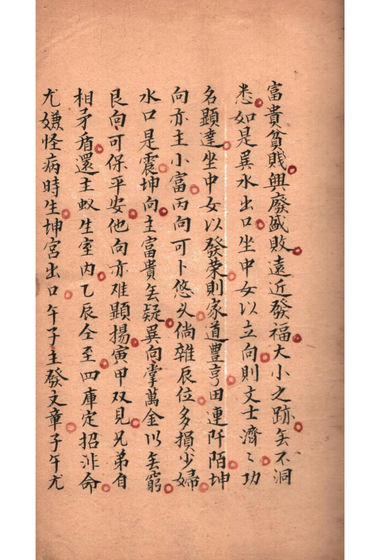 富貴貧賤興廢盛敗遠近發福大小之跡矣不洞
悉如是巽水出口坐中女以立向則文士濟〻功
名顕達坐中女以發榮則家道豊亨田連阡陌坤
向亦主小富丙向可卜悠久倘雜辰位多損少婦
水口是震坤向主富貴矣疑巽向掌萬金以矣窮
艮向可保平安他向亦难顕揚寅甲双見兄弟自
相矛盾還主蚁生室内乙辰仝至四庫定招非命
尤嫌怪病時生坤宮出口午子主發文章子午尤